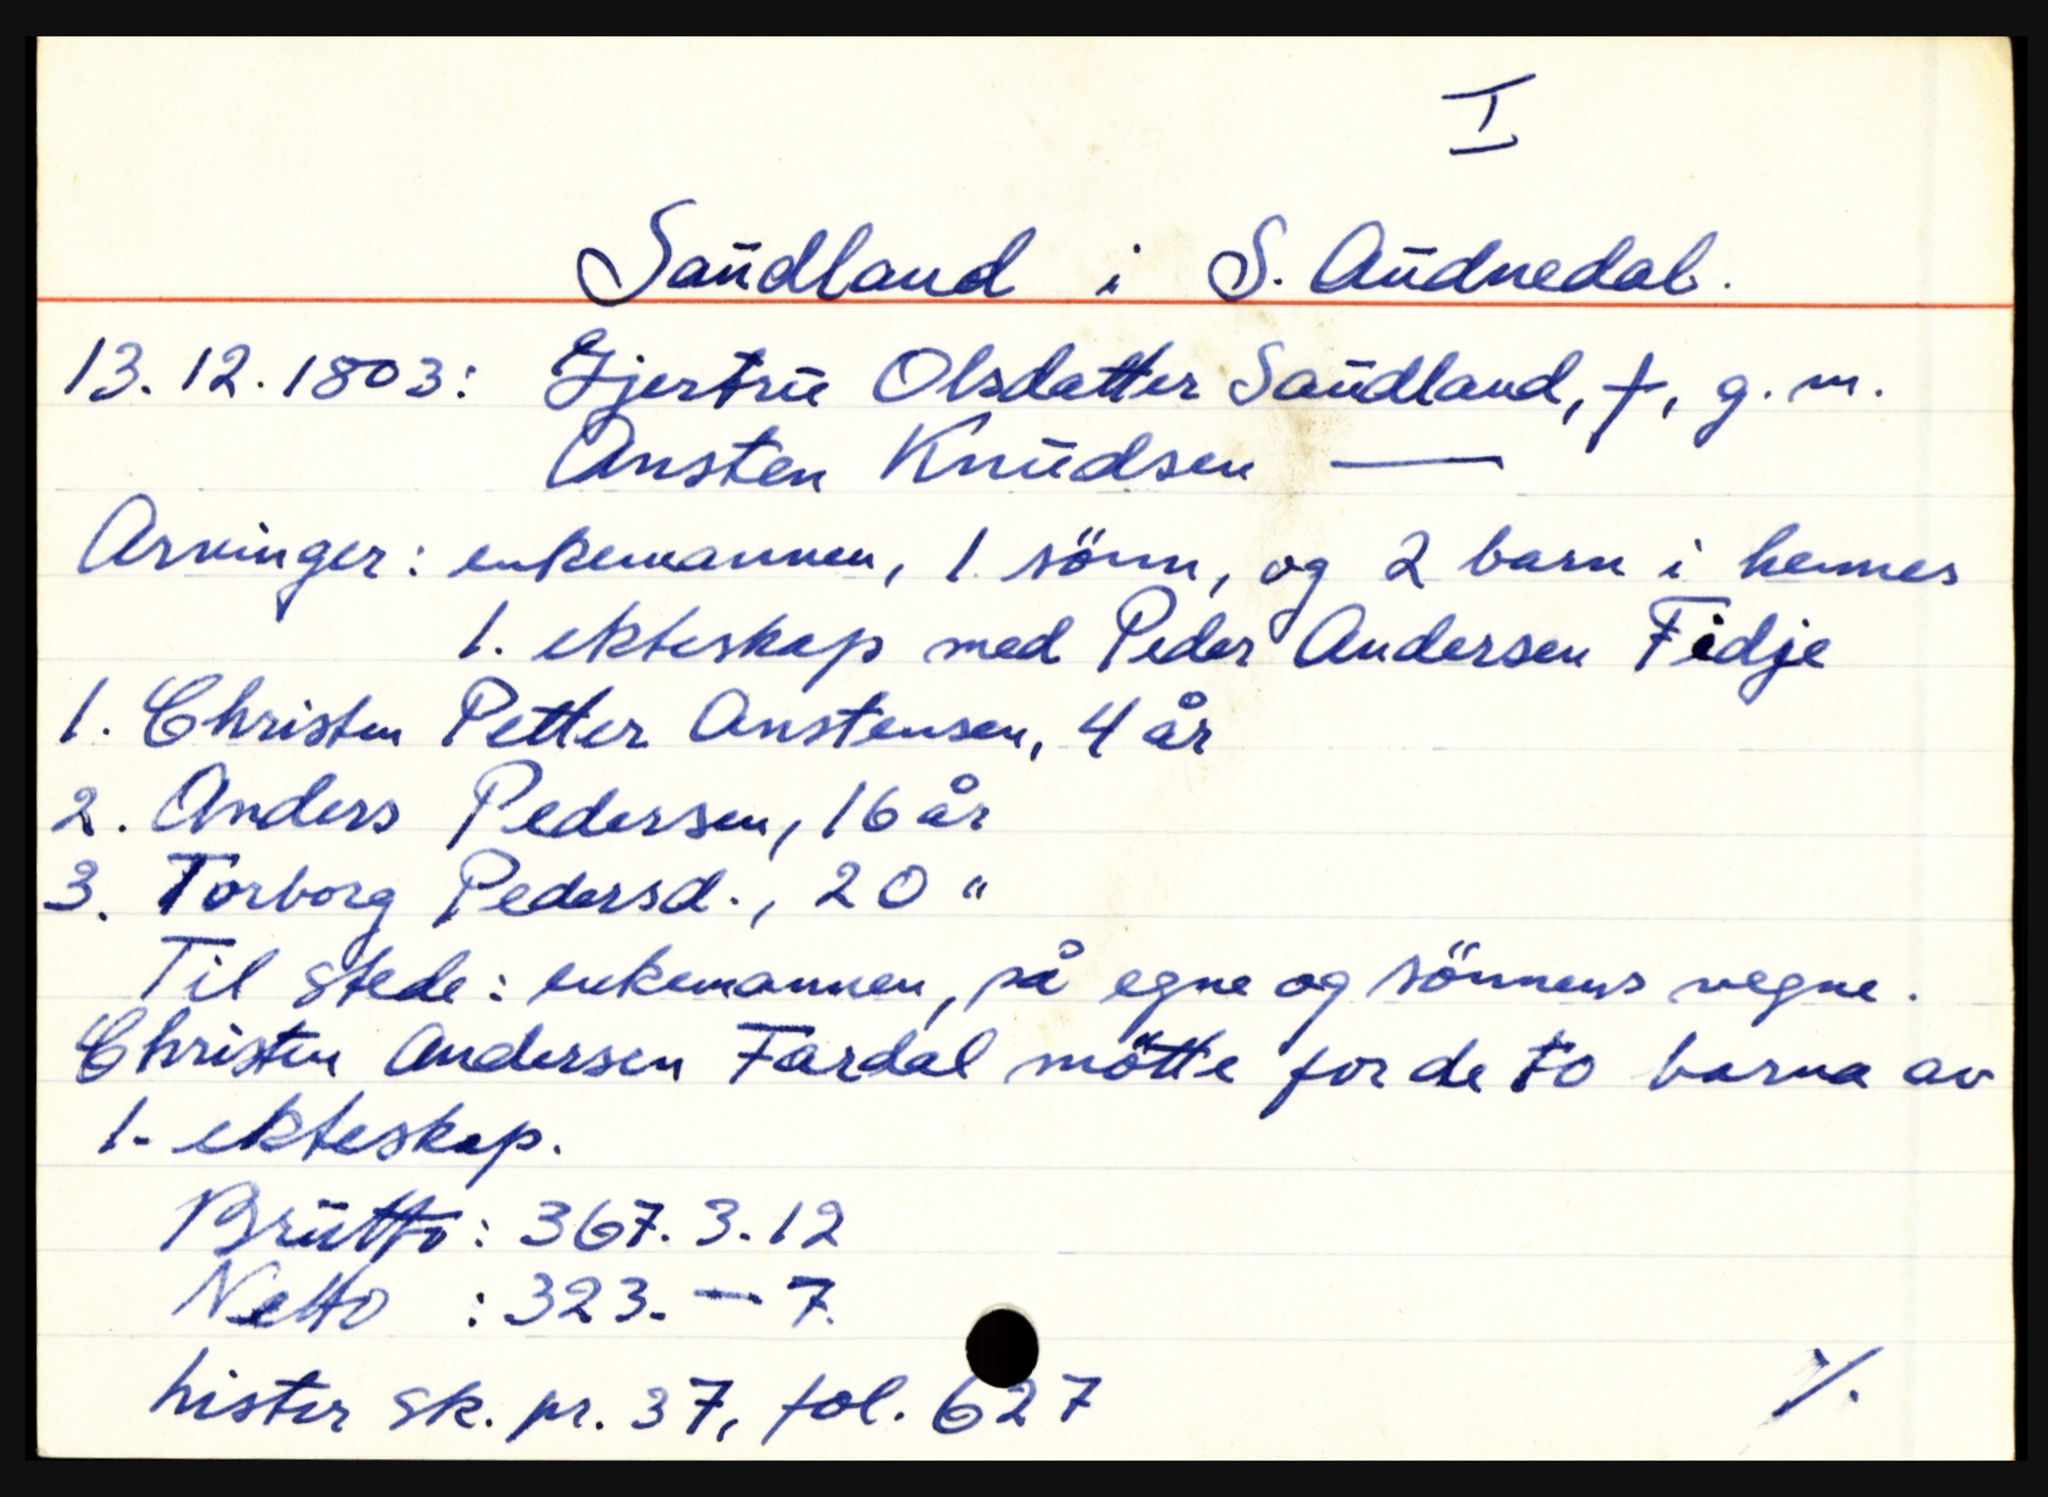 I
Saudland i S. Audnedal.
13.12.1803: Gjertru Olsdatter Saudland, †, g.m.
Ansten Knudsen —
Arvinger: enkemannen, 1 sönn, og 2 barn i hennes
1. ekteskap med Peder Andersen Fidje
1. Christen Petter Anstensen, 4 år
2. Anders Pedersen, 16 år
3. Torborg Pedersd., 20 "
Til stede: enkemannen, på egne og sönnens vegne.
Christen Andersen Fardal mötte for de to barna av
1. ekteskap.
Brutto: 367.3.12
Netto : 323.— 7.
Lister sk. pr. 37, fol. 627
%.